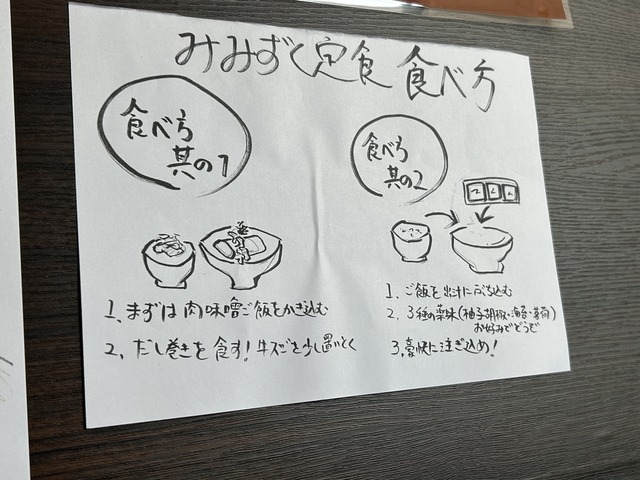 みみずく定食 食べ方
食べ方
其の1
1. まずは 肉味噌ご飯をかき込む
2. だし巻きを 食す! 牛スジを少し置いとく
食べ方
其の2
1. ご飯を出汁にぶち込む
2. 3種の薬味(柚子胡椒・海苔・茗荷)
お好みでどうぞ
3. 豪快に注ぎ込め!